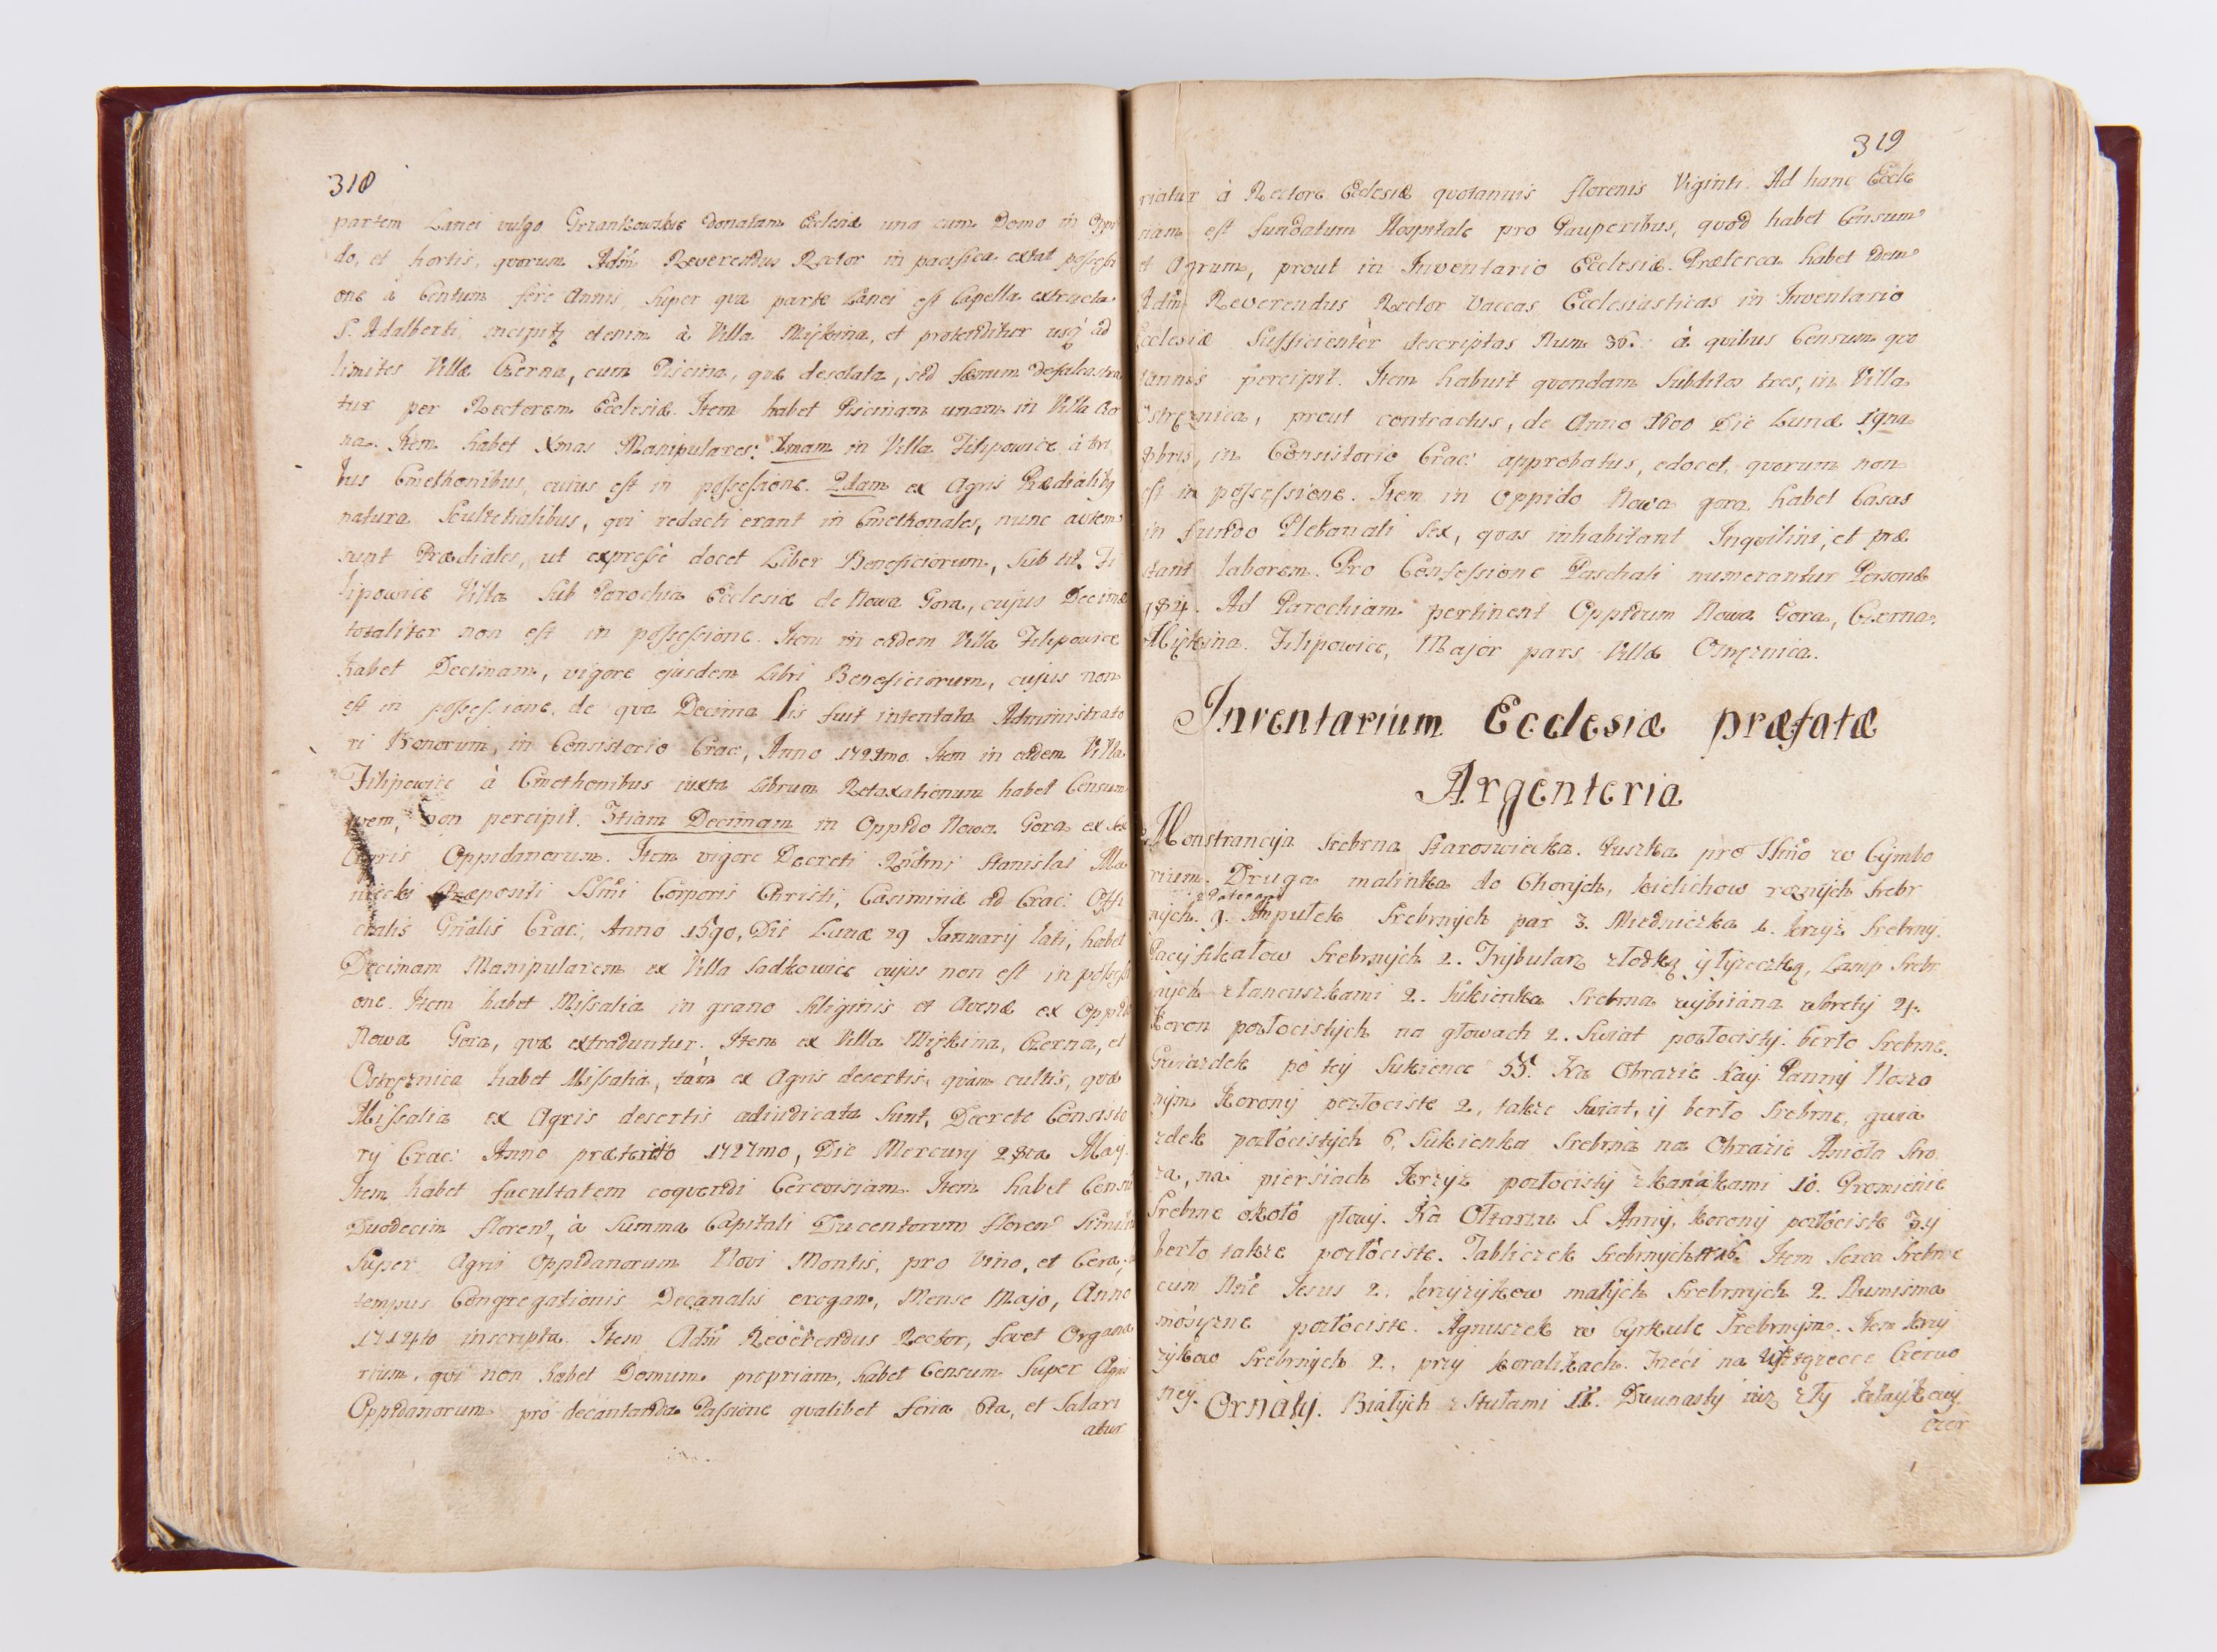 318
partem Lanei vulgo donatam Ecclesiæ una cum Domo in Oppi
do, et hortis, quorum Adm̃ Reverendus Rector in pacifica extat possessi
one à Centum fere Annis, super qua parte Lanei est Capella extructa
S. Adalberti, incipitq etenim à Villa Miękina, et protenditur usq̃ ad
limites Villæ Czerna, cum Piscina, quæ desolata, sed fænum
tur per Rectorem Ecclesiæ. Item habet Piscinam unam in Villa Czer
na. Item habet Xmas Manipulares: 1mam in Villa Filipowice à tri
bus Cmethonibus, cuius est in possessione. 2dam ex Agris Prædialibq
natura Scultetialibus, qui redacti erant in Cmethonales, nunc autem
sunt Prædiales, ut expresse docet Liber Beneficiorum, sub tit. Fi
lipowice Villa sub Parochia Ecclesiæ de Nowa Gora, cujus Decimæ
totaliter non est in possessione. Item in eadem Villa Filipowice
habet Decimam, vigore ejusdem Libri Beneficiorum, cujus non
est in possessione, de qua Decima lis fuit intentata Administrato
ri Bonorum, in Consistorio Crac:, Anno 1721mo. Item in eadem Villa
Filipowice à Cmethonibus iuxta Librum Retaxationum habet Censum
quem, non percipit. 3tiam Decimam in Oppido Nowa Gora ex
Agris Oppidanorum. Item vigore Decreti Rndmi Stanislai Ma
niecki Præpositi SSmi Corporis Christi, Casimiriæ ad Crac: Offi
cialis Gñalis Crac:, Anno 1590, Die Lunæ 29 Januarij lati, habet
Decimam Manipularem ex Villa Sadkowice cujus non est in possessi
one. Item habet Missalia in grano siliginis et Avenæ ex Oppido
Nowa Gora, quæ extraduntur. Item ex Villa Miękina, Czerna, et
Ostręznica habet Missalia, tam ex Agris desertis, quàm cultis, quæ
Missalia ex Agris desertis adiudicata sunt, Decreto Consisto
rij Crac: Anno præterito 1727mo, Die Mercurij 28va Maij.
Item habet facultatem coquendi Cerevisiam. Item habet Censũ
Duodecim floren, à Summa Capitali Ducentorum floren
super Agris Oppidanorum Novi Montis, pro Vino, et Cera,
tempus Congregationis Decanalis erogan, Mense Majo, Anno
1714to inscripta. Item Adm̃ Reverendus Rector, fovet Organa
rium, qui non habet Domum propriam, habet Censum super Agris
Oppidanorum pro decantanda Passione qualibet feria 6ta, et Salari
atur
319
riatur à Rectore Ecclesiæ quotannis florenis Viginti. Ad hanc Eccle
siam est fundatum Hospitale pro Pauperibus, quod habet Censum
et Agrum, prout in Inventario Ecclesiæ. Præterea habet Idem
Adm̃ Reverendus Rector Vaccas Ecclesiasticas in Inventario
Ecclesiæ Sufficienter descriptas Num 36. à quibus Censum quo
tannis percipit. Item habuit quondam Subditos tres, in Villa
Ostręznica, prout contractus, de Anno 1600 Die Lunæ
9bris, in Consistorio Crac: approbatus, edocet, quorum non
est in possessione. Item in Oppido Nowa gora habet Casas
in fundo Plebanali sex, quas inhabitant Inquilini, et præ
stant laborem. Pro Confessione Paschali numerantur Personæ
Ad Parochiam pertinent Oppidum Nowa Gora, Czerna,
Miękina. Filipowice, Major pars Villæ Ostręznica.
Inventarium Ecclesiæ præfatæ
Argenteria
Monstrancyja Srebrna staroswiecka. Puszka pro SSmo w Cymbo
rium. Druga malinka do Chorych, kielichow roznych Srebr
nych. 9. Ampułek Srebrnych par 3. Miedniczka 1. krzyż Srebrny.
Pacyfikałow Srebrnych 2. Trybularz złodką y łyzeczką, Lamp Srebr
nych złancuszkami 2. Sukienka Srebrna wybiiana wbrety 4.
Koron pozłocistych na głowach 2. Swiat pozłocisty. berło Srebrne.
Gwiazdek po tey Sukience 55. Na Obrazie Nay. Panny Rozo
nym Korony pozłociste 2, także Swiat, y berło Srebrne, gwia
zdek pozłocistych 6, Sukienka Srebrna na Obrazie Anioła Stro
za, na piersiach Krzyz pozłocisty zkanakami 10. Promienie
Srebrne około głowy. Na Ołtarzu S. Anny, korony pozłociste 3. y
berło także pozłociste. Tabliczek Srebrnych 16. Item Serca Srebrne
cum Nñe Jesus 2, krzyzykow małych Srebrnych 2. Numisma
mosyzne pozłociste. Agnuszek w Cyrkule Srebrnym. Item krzy
zykow Srebrnych 2, przy koralikach. Trzeci na wstązecce Czerwo
ney. Ornaty. Białych z Stułami 11. Dwunasty iuz zły kitaykowy
czer